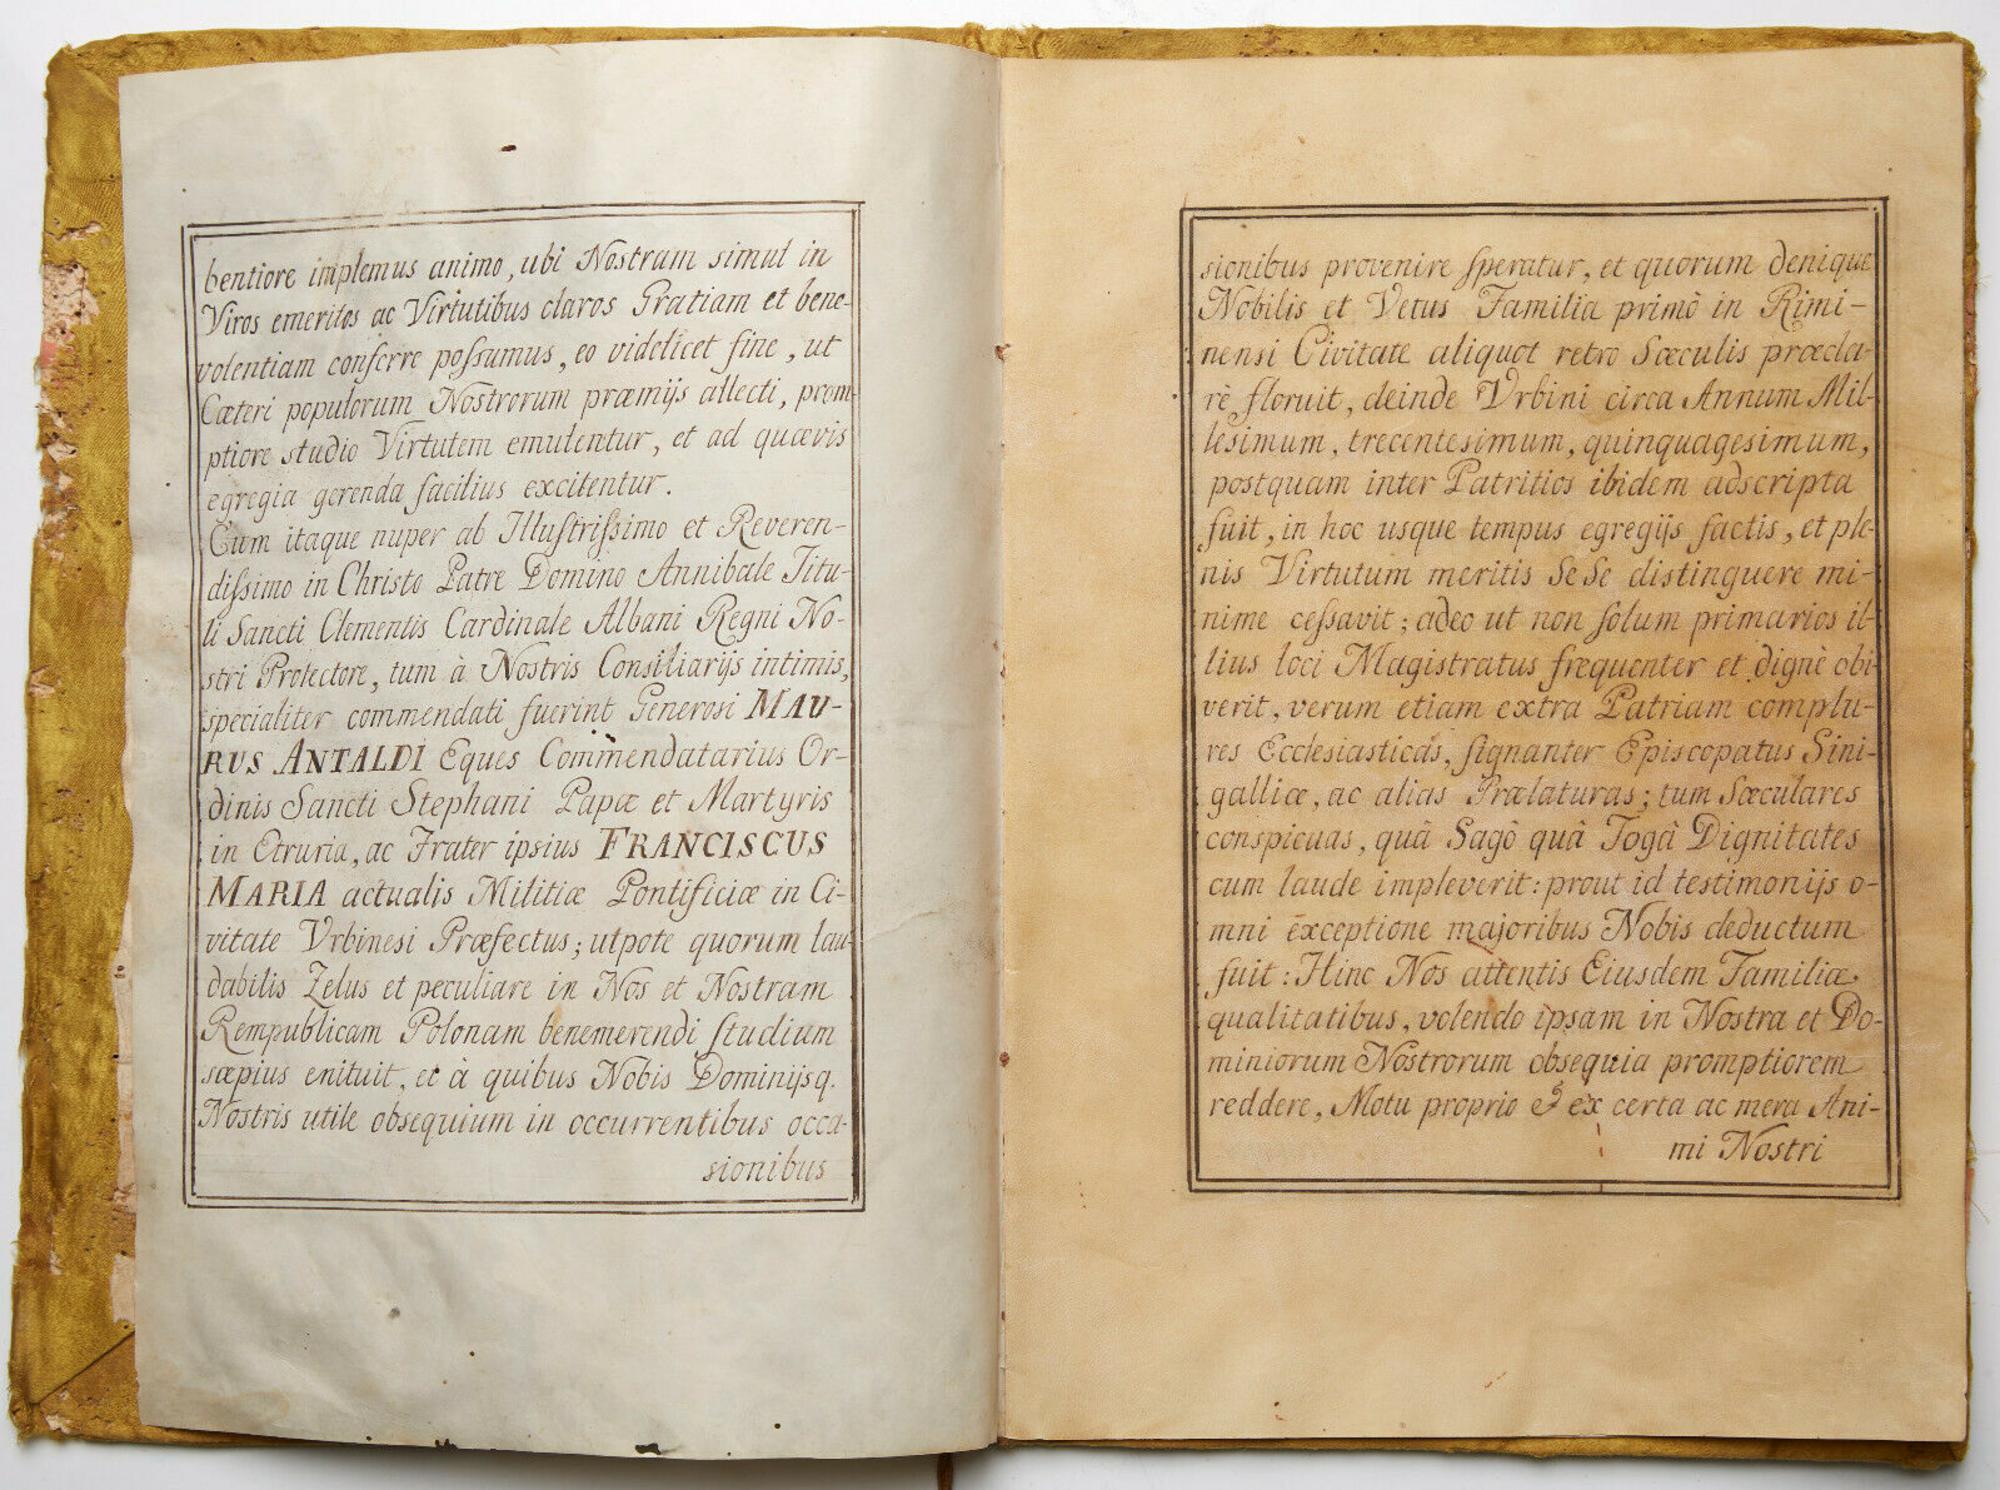 bentiore implemus animo, ubi Nostram simul in
Viros emeritos ac Virtutibus claros Gratiam et bene-
volentiam conferre poſsumus, eo videlicet fine, ut
Cæteri populorum Nostrorum præmijs allecti, prom-
ptiore studio Virtutem emulentur, et ad quævis
egregia gerenda facilius excitentur.
Cum itaque nuper ab Illuſtriſsimo et Reveren-
diſsimo in Christo Patre Domino Annibale Titu-
li Sancti Clementis Cardinale Albani Regni No-
stri Protectore, tum à Nostris Consiliarijs intimis,
specialiter commendati fuerint Generosi MAU-
RUS ANTALDI Eques Commendatarius Or-
dinis Sancti Stephani Papæ et Martyris
in Etruria, ac Frater ipsius FRANCISCUS
MARIA actualis Militiæ Pontificiæ in Ci-
vitate Vrbinesi Præfectus; utpote quorum lau-
dabilis Zelus et peculiare in Nos et Nostram
Rempublicam Polonam benemerendi ſtudium
sæpius enituit, et à quibus Nobis Dominijsq.
Nostris utile obsequium in occurrentibus occa-
sionibus
sionibus provenire ſperatur, et quorum denique
Nobilis et Vetus Familia primò in Rimi-
nensi Civitate aliquot retro Sæculis præcla-
rè floruit, deinde Vrbini circa Annum Mil-
lesimum, trecentesimum, quinquagesimum,
postquam inter Patritios ibidem adscripta
fuit, in hoc usque tempus egregijs factis, et ple-
nis Virtutum meritis SeSe distinguere mi-
nime ceſsavit; adeo ut non ſolum primarios il-
lius loci Magistratus frequenter et dignè obi-
verit, verum etiam extra Patriam complu-
res Ecclesiasticas, ſignanter Episcopatus Sini-
galliæ, ac alias Prælaturas; tum Sæculares
conspicuas, quâ Sagô quâ Togâ Dignitates
cum laude impleverit: prout id testimonijs o-
mni exceptione majoribus Nobis deductum
fuit: Hinc Nos attentis Eiusdem Familiæ
qualitatibus, volendo ipsam in Nostra et Do-
miniorum Nostrorum obsequia promptiorem
reddere, Motu proprio & ex certa ac mera Ani-
mi Nostri